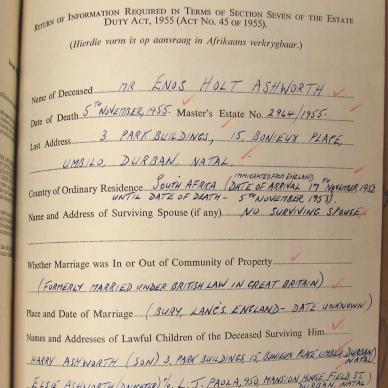 RETURN OF INFORMATION REQUIRED IN TERMS OF SECTION SEVEN OF THE ESTATE
DUTY ACT, 1955 (ACT NO. 45 OF 1955).
(Hierdie vorm is op aanvraag in Afrikaans verkrygbaar.)
Name of Deceased MR ENOS HOLT ASHWORTH
Date of Death 5TH NOVEMBER, 1955. Master's Estate No. 2964/1955.
Last Address 3 PARK BUILDINGS, 15, BONIEUX PLACE,
UMBILO, DURBAN NATAL.
(IMMIGRATED FROM ENGLAND)
Country of Ordinary Residence SOUTH AFRICA (DATE OF ARRIVAL 17TH NOVEMBER, 1952
UNTIL DATE OF DEATH - 5TH NOVEMBER, 1955).
Name and Address of Surviving Spouse (if any) NO SURVIVING SPOUSE
Whether Marriage was In or Out of Community of Property
(FORMERLY MARRIED UNDER BRITISH LAW IN GREAT BRITAIN)
Place and Date of Marriage (BURY, LANCS. ENGLAND - DATE UNKNOWN)
Names and Addresses of Lawful Children of the Deceased Surviving Him
HARRY ASHWORTH (SON) 3, PARK BUILDINGS 15 BONIEUX PLACE UMBILO DURBAN NATAL
ELSIE ASHWORTH (DAUGHTER) C/O L.J. PAOLA, 950, MANSION HOUSE FIELD ST. DURBAN NATAL)